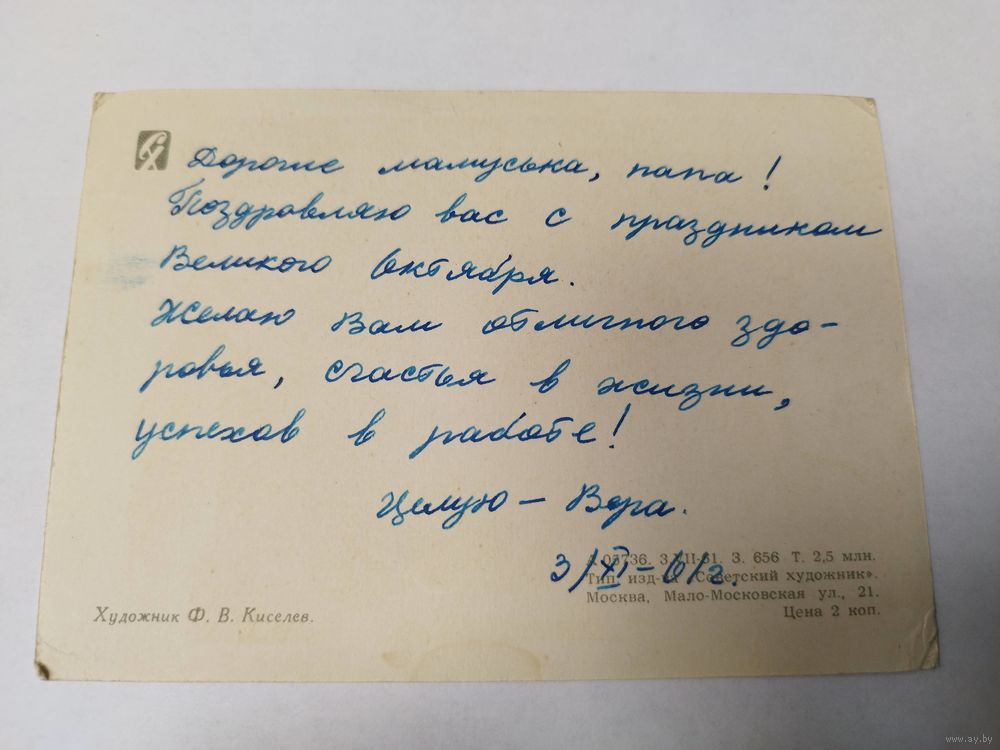 Дорогие мамуська, папа!
Поздравляю вас с праздником
Великого Октября.
Желаю Вам отличного здо-
ровья, счастья в жизни,
успехов в работе!
Целую — Вера.
3/XI-61г.
Художник Ф. В. Киселев.
05736. 3. 656 Т. 2,5 млн.
Тип. изд-ва «Советский художник».
Москва, Мало-Московская ул., 21.
Цена 2 коп.
www.ay.by